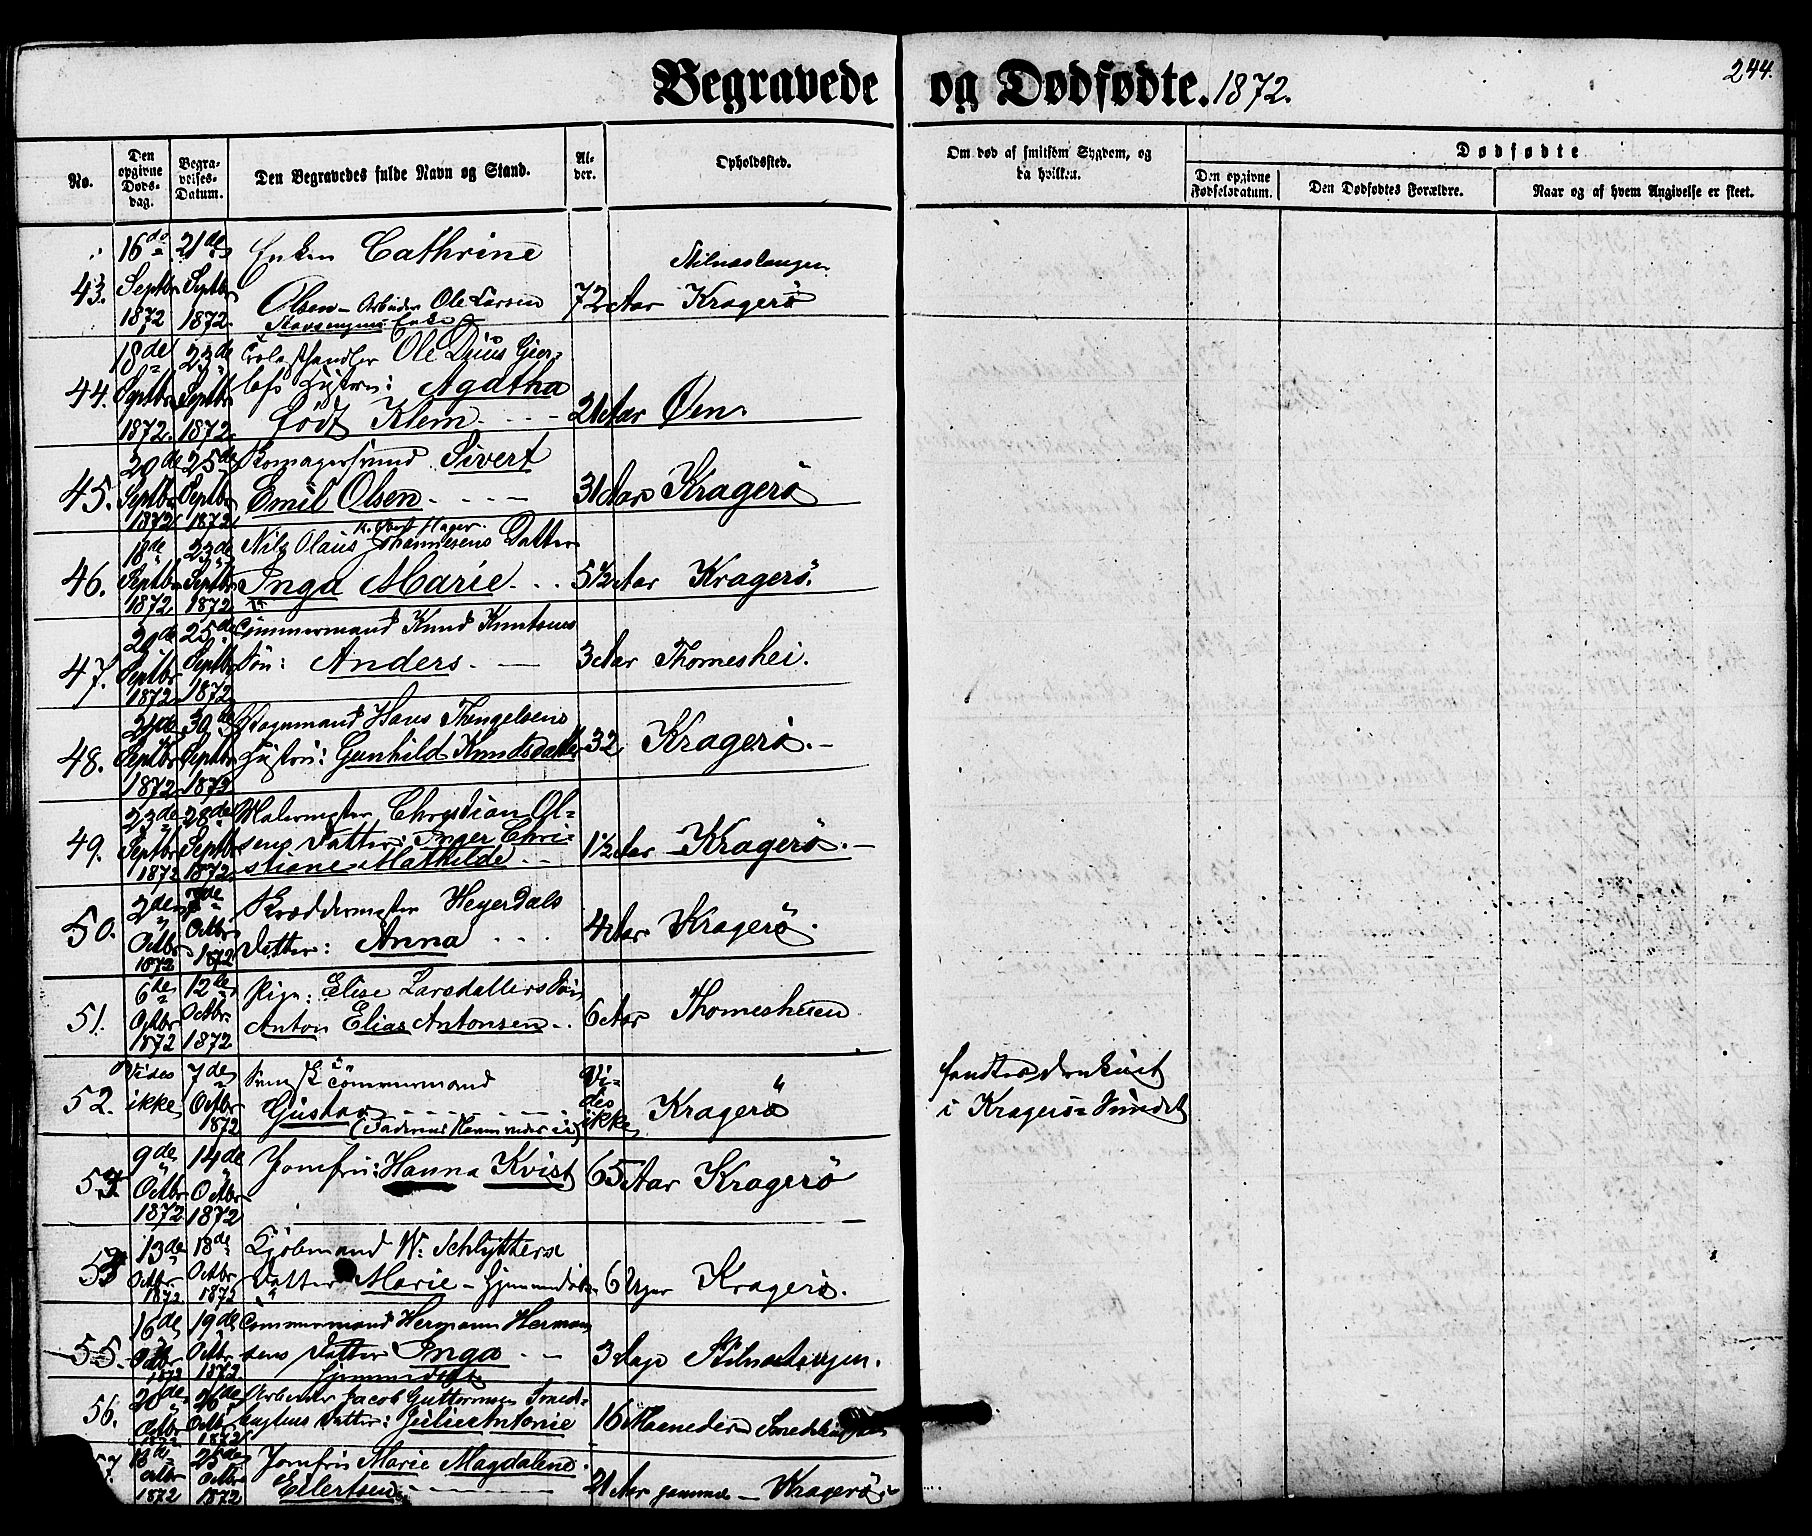 Begravede og Dødfødte. 1872.
244.
No.
Den opgivne Døds-dag.
Begra-velses-Datum.
Den Begravedes fulde Navn og Stand.
Al-der.
Opholdssted.
Om død af smitsom Sygdom, og da hvilken.
Dødfødte
Den opgivne Fødselsdatum.
Den Dødfødtes Forældre.
Naar og af hvem Angivelse er skeet.
43. 16de Septbr 1872 21de Septbr 1872 Enken Cathrine
Olsen - Arbeider Ole Larsen
Enke 72 Aar Kragerö
44. 18de Septbr 1872. 23de Septbr 1872. Ole Dius Gier-
Hustru: Agatha
född Klem 21 Aar Øen
45. 20de Septbr 1872 25de Septbr 1872 Sivert
Emil Olsen 31 Aar Kragerö
46. 18de Septbr 1872 23de Septbr 1872 Nils Olaus Johannesens Datter
Inga Marie 5½ Aar Kragerö.
47. 20de Septbr 1872 25de Septbr 1872 Tömmermand Knud Knutsens
Sön: Anders 3 Aar Thomeshei.
48. Septbr 1872 30de Septbr 1872 Hans Thengelsens
Hustru: Gunhild Knudsdatter 32 Kragerö.
49. 23de Septbr 1872 28de Septbr 1872 Malermester Christian Ol-
sens Datter: Inger Chri-
stiane Mathilde 1½ Aar Kragerö.
50. 2de Octbr 1872 Octbr 1872 Skræddermester Heyerdals
Datter: Anna 4 Aar Kragerö.
51. 6de Octbr 1872 12de Octbr 1872 Pige: Elise Larsdatters Sön
Anton Elias Antonsen 6 Aar Thomesheien
52. Vides ikke 7de Octbr 1872 Svensk Tömmermand
Gustav Vi-des ikke Kragerö
fandtes druknet
i Kragerö-Sundet
53. 9de Octbr 1872 14de Octbr 1872 Jomfru: Hanna Kvist 65 Aar Kragerö
13de Octbr 1872 18de Octbr 1872 Kjöbmand W: Schlytters
Datter Marie - Hjemmedöbt 6 Uger Kragerö.
55. 16de Octbr 1872 19de Octbr 1872. Tömmermand Hermann Herman
sens Datter Inga
Hjemmedöbt 3 Dage Stilnestangen.
56. 20de Octbr 1872 26de Octbr 1872 Arbeider Jacob Guttormsen Smeds-
Datter: Julie Antonie 16 Maaneder
57. Octbr 1872 25de Octbr 1872 Jomfru Marie Magdalene
Eilertsen 21 Aar gammel - Kragerö